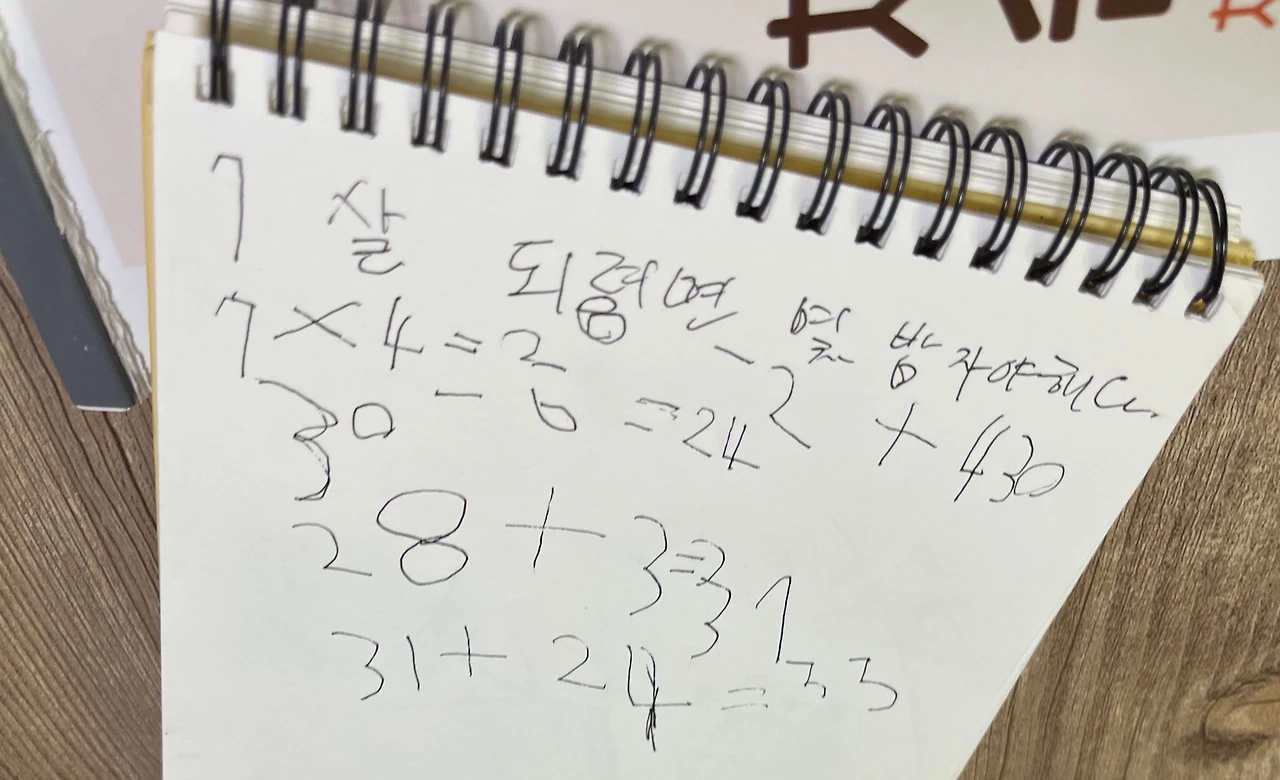 7 살 되려면 몇 밤 자야해
7 × 4 = 2
30 - 6 = 24 2 × 430
28 + 3 = 31
31 + 24 = 33